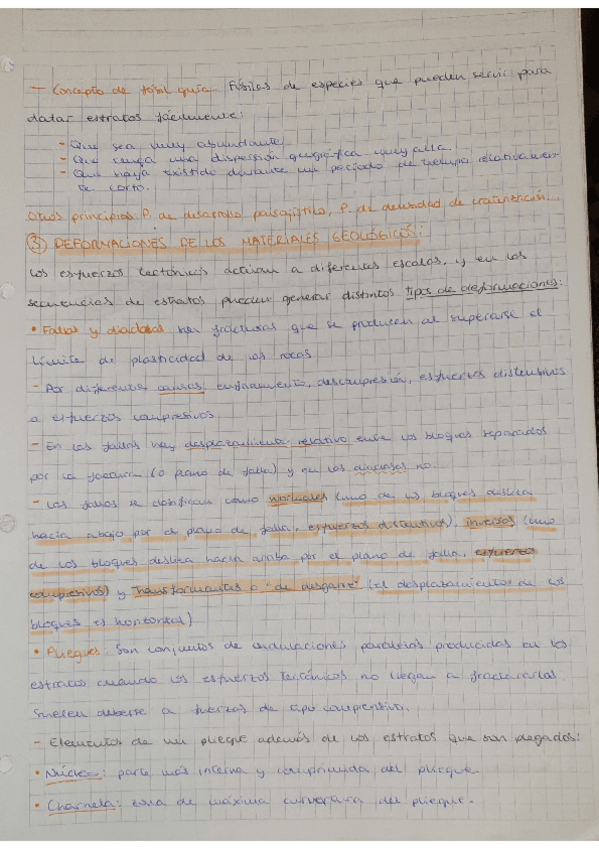 - Concepto de fósil guía. Fósiles de especies que pueden servir para
datar estratos fácilmente:
- Que sea muy abundante
- Que tenga una dispersión geográfica muy alta.
- Que haya existido durante un periodo de tiempo relativamen-
te corto.
Otros principios P. de desarrollo paisajístico, P. de densidad de craterización.
③ DEFORMACIONES DE LOS MATERIALES GEOLÓGICOS:
Los esfuerzos tectónicos actúan a diferentes escalas, y en las
secuencias de estratos pueden generar distintos tipos de deformaciones:
• Fallas y diaclasas: son fracturas que se producen al superarse el
límite de plasticidad de las rocas
- Por diferentes causas, enfriamiento, descompresión, esfuerzos distensivos
o esfuerzos compresivos
- En las fallas hay desplazamiento relativo entre los bloques separados
por la fractura (o plano de falla) y en las diaclasas no.
- Las fallas se clasifican como normales (uno de los bloques desliza
hacia abajo por el plano de falla, esfuerzos distensivos), inversas (uno
de los bloques desliza hacia arriba por el plano de falla, esfuerzos
compresivos) y transformantes o "de desgarre" (el desplazamiento de los
bloques es horizontal)
• Pliegues: Son conjuntos de ondulaciones paralelas producidas en los
estratos cuando los esfuerzos tectónicos no llegan a fracturarlos
Suelen deberse a fuerzas de tipo compresivo.
- Elementos de un pliegue además de los estratos que son plegados:
• Núcleo: parte más interna y comprimida del pliegue.
• Charnela: zona de máxima curvatura del pliegue.